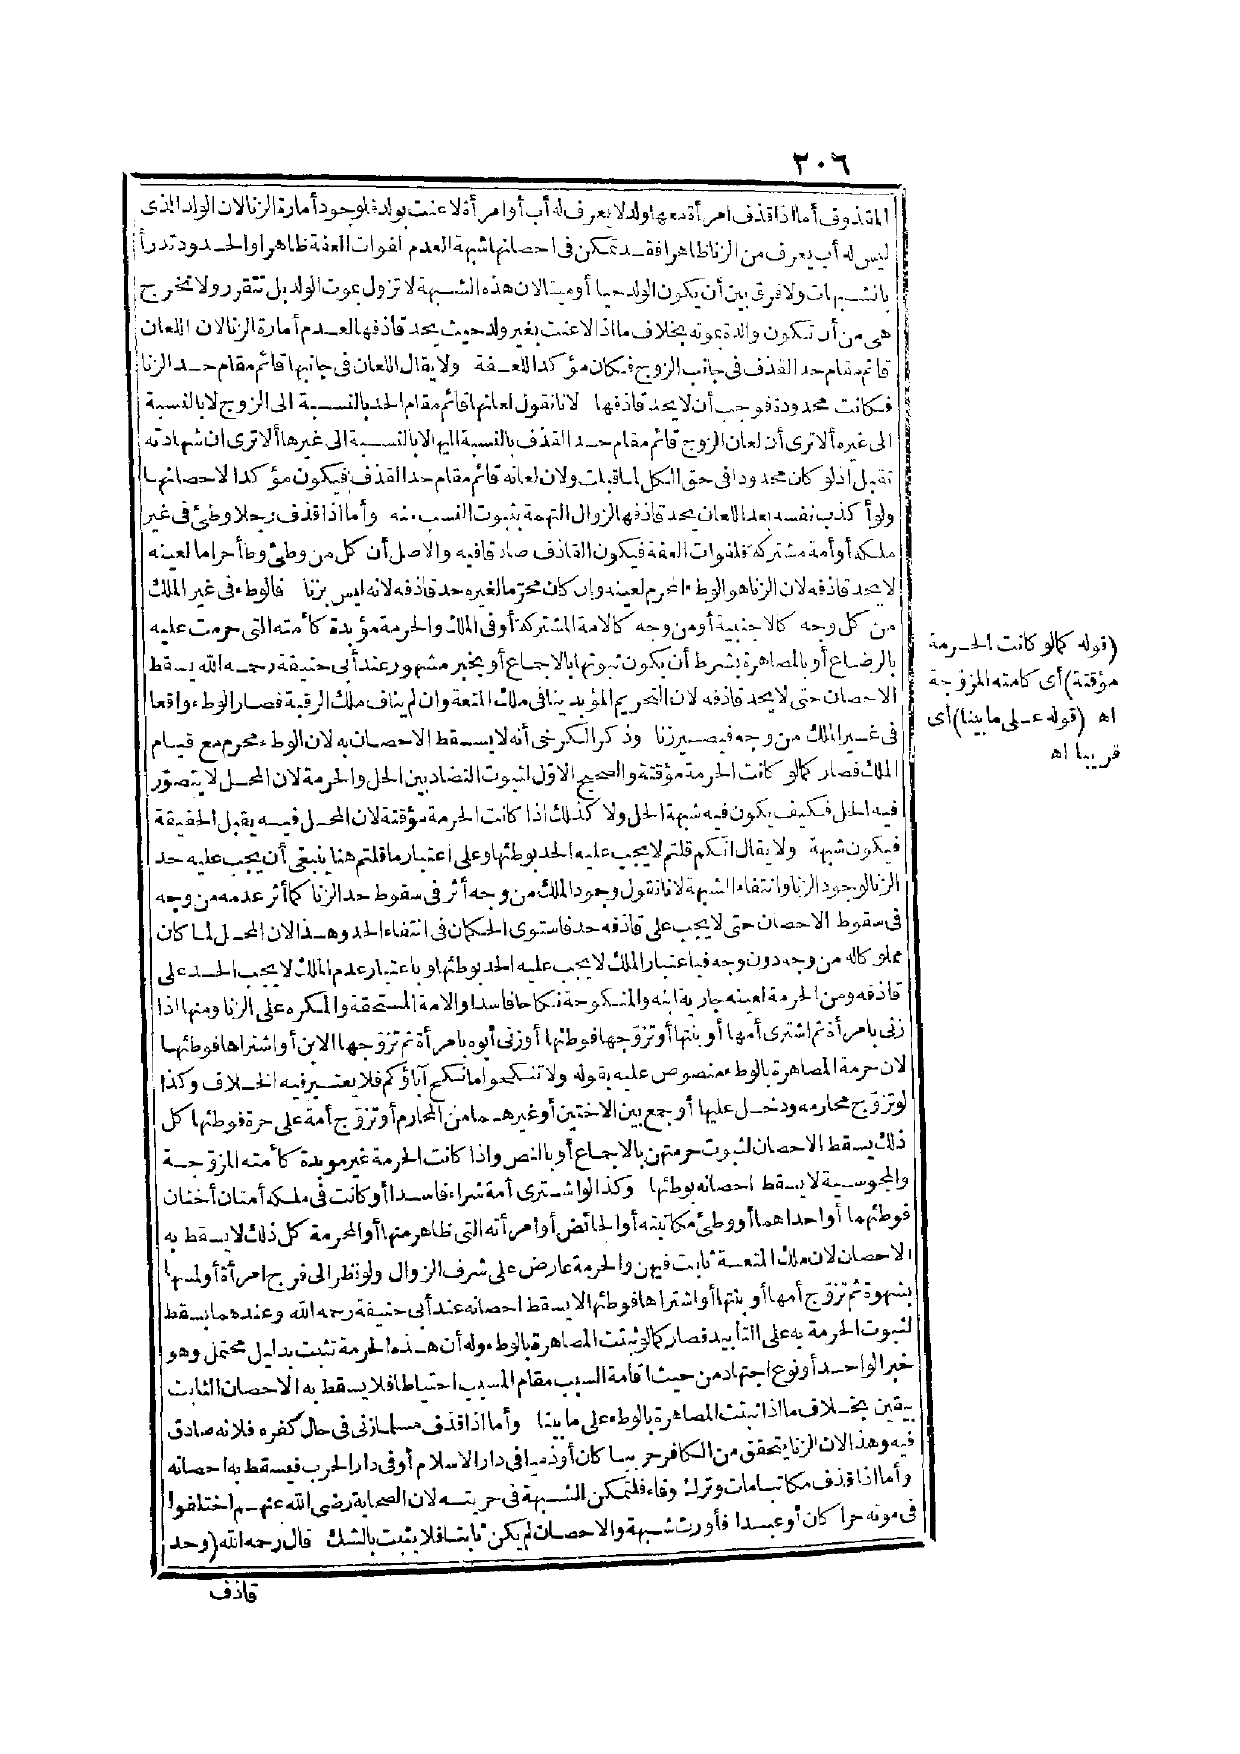 ٢٠٦
المقذوف أما اذا قذف امرأة معها ولد لا يعرف له أب أو امرأة لاعنت بولد فلوجود أمارة الزنا لان الولد الذى
ليس له أب يعرف من الزنا ظاهرا فقد تمكن فى احصانها شبهة العدم لفوات العفة ظاهرا والحدود تدرأ
بالشبهات ولا فرق بين أن يكون الولد حيا أو ميتا لان هذه الشبهة لا تزول بموت الولد بل تتقرر ولا تخرج
هى من أن تكون والدة بموته بخلاف ما اذا لاعنت بغير ولد حيث يحد قاذفها لعدم أمارة الزنا لان اللعان
قائم مقام حد القذف فى جانب الزوج فكان مؤكدا للعفة ولا يقال اللعان فى جانبها قائم مقام حد الزنا
فكانت محدودة فوجب أن لا يحد قاذفها لانا نقول لعانها قائم مقام الحد بالنسبة الى الزوج لا بالنسبة
الى غيره ألا ترى أن لعان الزوج قائم مقام حد القذف بالنسبة اليها لا بالنسبة الى غيرها ألا ترى ان شهادته
تقبل اذ لو كان محدودا فى حق الكل لما قبلت ولان لعانه قائم مقام حد القذف فيكون مؤكدا لاحصانها
ولو أكذب نفسه بعد اللعان يحد قاذفها لزوال التهمة بثبوت النسب منه وأما اذا قذف رجلا وطئ فى غير
ملكه أو أمة مشتركة فلفوات العفة فيكون القاذف صادقا فيه والاصل أن كل من وطئ وطأ حراما لعينه
لا يحد قاذفه لان الزنا هو الوطء المحرم لعينه وان كان محرما لغيره حد قاذفه لانه ليس بزنا فالوطء فى غير الملك
من كل وجه كالاجنبية أو من وجه كالامة المشتركة أو فى الملك والحرمة مؤبدة كأمته التى حرمت عليه
بالرضاع أو بالمصاهرة بشرط أن يكون ثبوتها بالاجماع أو بخبر مشهور عند أبى حنيفة رحمه الله يسقط
الاحصان حتى لا يحد قاذفه لان التحريم المؤبد ينافى ملك المتعة وان لم يناف ملك الرقبة فصار الوطء واقعا
فى غير الملك من وجه فيصير زنا وذكر الكرخى أنه لا يسقط الاحصان به لان الوطء محرم مع قيام
الملك فصار كما لو كانت الحرمة مؤقتة والصحيح الاول لثبوت التضاد بين الحل والحرمة لان المحل لا يتصور
فيه الحل فكيف يكون فيه شبهة الحل ولا كذلك اذا كانت الحرمة مؤقتة لان المحل فيه يقبل الحقيقة
فيكون شبهة ولا يقال انكم قلتم لا يجب عليه الحد بوطئها وعلى اعتبار ما قلتم هنا ينبغى أن يجب عليه حد
الزنا لوجود الزنا وانتفاء الشبهة لانا نقول وجود الملك من وجه أثر فى سقوط حد الزنا كما أثر عدمه من وجه
فى سقوط الاحصان حتى لا يجب على قاذفه حد فاستوى الحكمان فى انتفاء الحد وهذا لان المحل لما كان
مملوكا له من وجه دون وجه فباعتبار الملك لا يجب عليه الحد بوطئها وباعتبار عدم الملك لا يجب الحد على
قاذفه ومن الحرمة لعينه جارية ابنه والمنكوحة نكاحا فاسدا والامة المستحقة والمكره على الزنا ومنها اذا
زنى بامرأة ثم اشترى أمها أو بنتها أو تزوجها فوطئها أو زنى أبوه بامرأة ثم تزوجها الابن أو اشتراها فوطئها
لان حرمة المصاهرة بالوطء منصوص عليه بقوله ولا تنكحوا ما نكح آباؤكم فلا يعتبر فيه الخلاف وكذا
لو تزوج محارمه ودخل عليها أو جمع بين الاختين أو غيرهما من المحارم أو تزوج أمة على حرة فوطئها كل
ذلك يسقط الاحصان لثبوت حرمتهن بالاجماع أو بالنص واذا كانت الحرمة غير مؤبدة كأمته المزوجة
والمجوسية لا يسقط احصانه بوطئها وكذا لو اشترى أمة شراء فاسدا أو كانت فى ملكه أمتان أختان
فوطئهما أو احداهما أو وطئ مكاتبته أو الحائض أو امرأته التى ظاهر منها أو المحرمة كل ذلك لا يسقط به
الاحصان لان ملك المتعة ثابت فيهن والحرمة عارض على شرف الزوال ولو نظر الى فرج امرأة أو لمسها
بشهوة ثم تزوج أمها أو بنتها أو اشتراها فوطئها لا يسقط احصانه عند أبى حنيفة رحمه الله وعندهما يسقط
لثبوت الحرمة به على التأبيد فصار كما لو ثبتت المصاهرة بالوطء وله أن هذه الحرمة تثبت بدليل محتمل وهو
خبر الواحد أو نوع اجتهاد من حيث اقامة السبب مقام المسبب احتياطا فلا يسقط به الاحصان الثابت
بيقين بخلاف ما اذا ثبتت المصاهرة بالوطء على ما بينا وأما اذا قذف مسلما زنى فى حال كفره فلانه صادق
فيه وهذا لان الزنا يتحقق من الكافر حربيا كان أو ذميا فى دار الاسلام أو فى دار الحرب فيسقط به احصانه
وأما اذا قذف مكاتبا مات وترك وفاء فلتمكن الشبهة فى حريته لان الصحابة رضى الله عنهم اختلفوا
فى موته حرا كان أو عبدا فأورث شبهة والاحصان لم يكن ثابتا فلا يثبت بالشك قال رحمه الله (وحد
قاذف
(قوله كما لو كانت الحرمة
مؤقتة) أى كامته المزوجة
اه (قوله على ما بينا) أى
قريبا اه